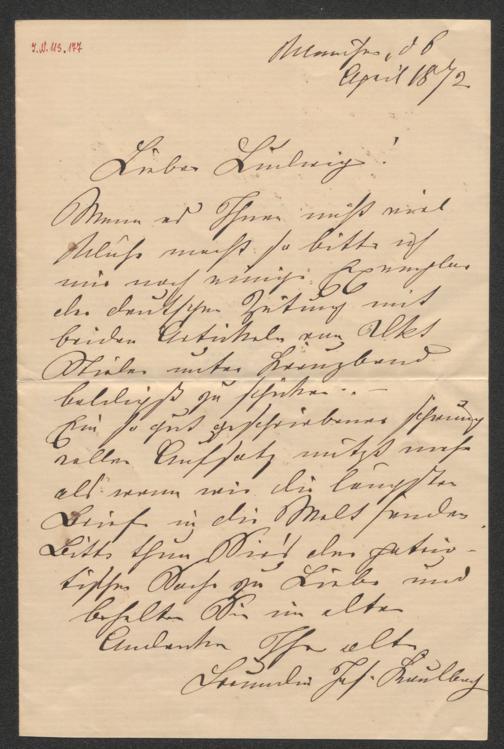 I.N. 115.177
München, d 6
April 1872
Lieber Ludwig!
Wenn es Ihnen nicht viel
Mühe macht so bitte ich
mir noch einige Exemplare
der deutschen Zeitung mit
beiden Artikeln von
Stieler unter Kreuzband
baldigst zu schicken. –
Ein so gut geschriebener schwung
voller Aufsatz nützt mehr
als wenn wir die längsten
Briefe in die Welt senden.
Bitte thun Sie's der patrio-
tischen Sache zu Liebe und
behalten Sie im alten
Andenken Ihre alte
Freundin Jos. Kaulbach